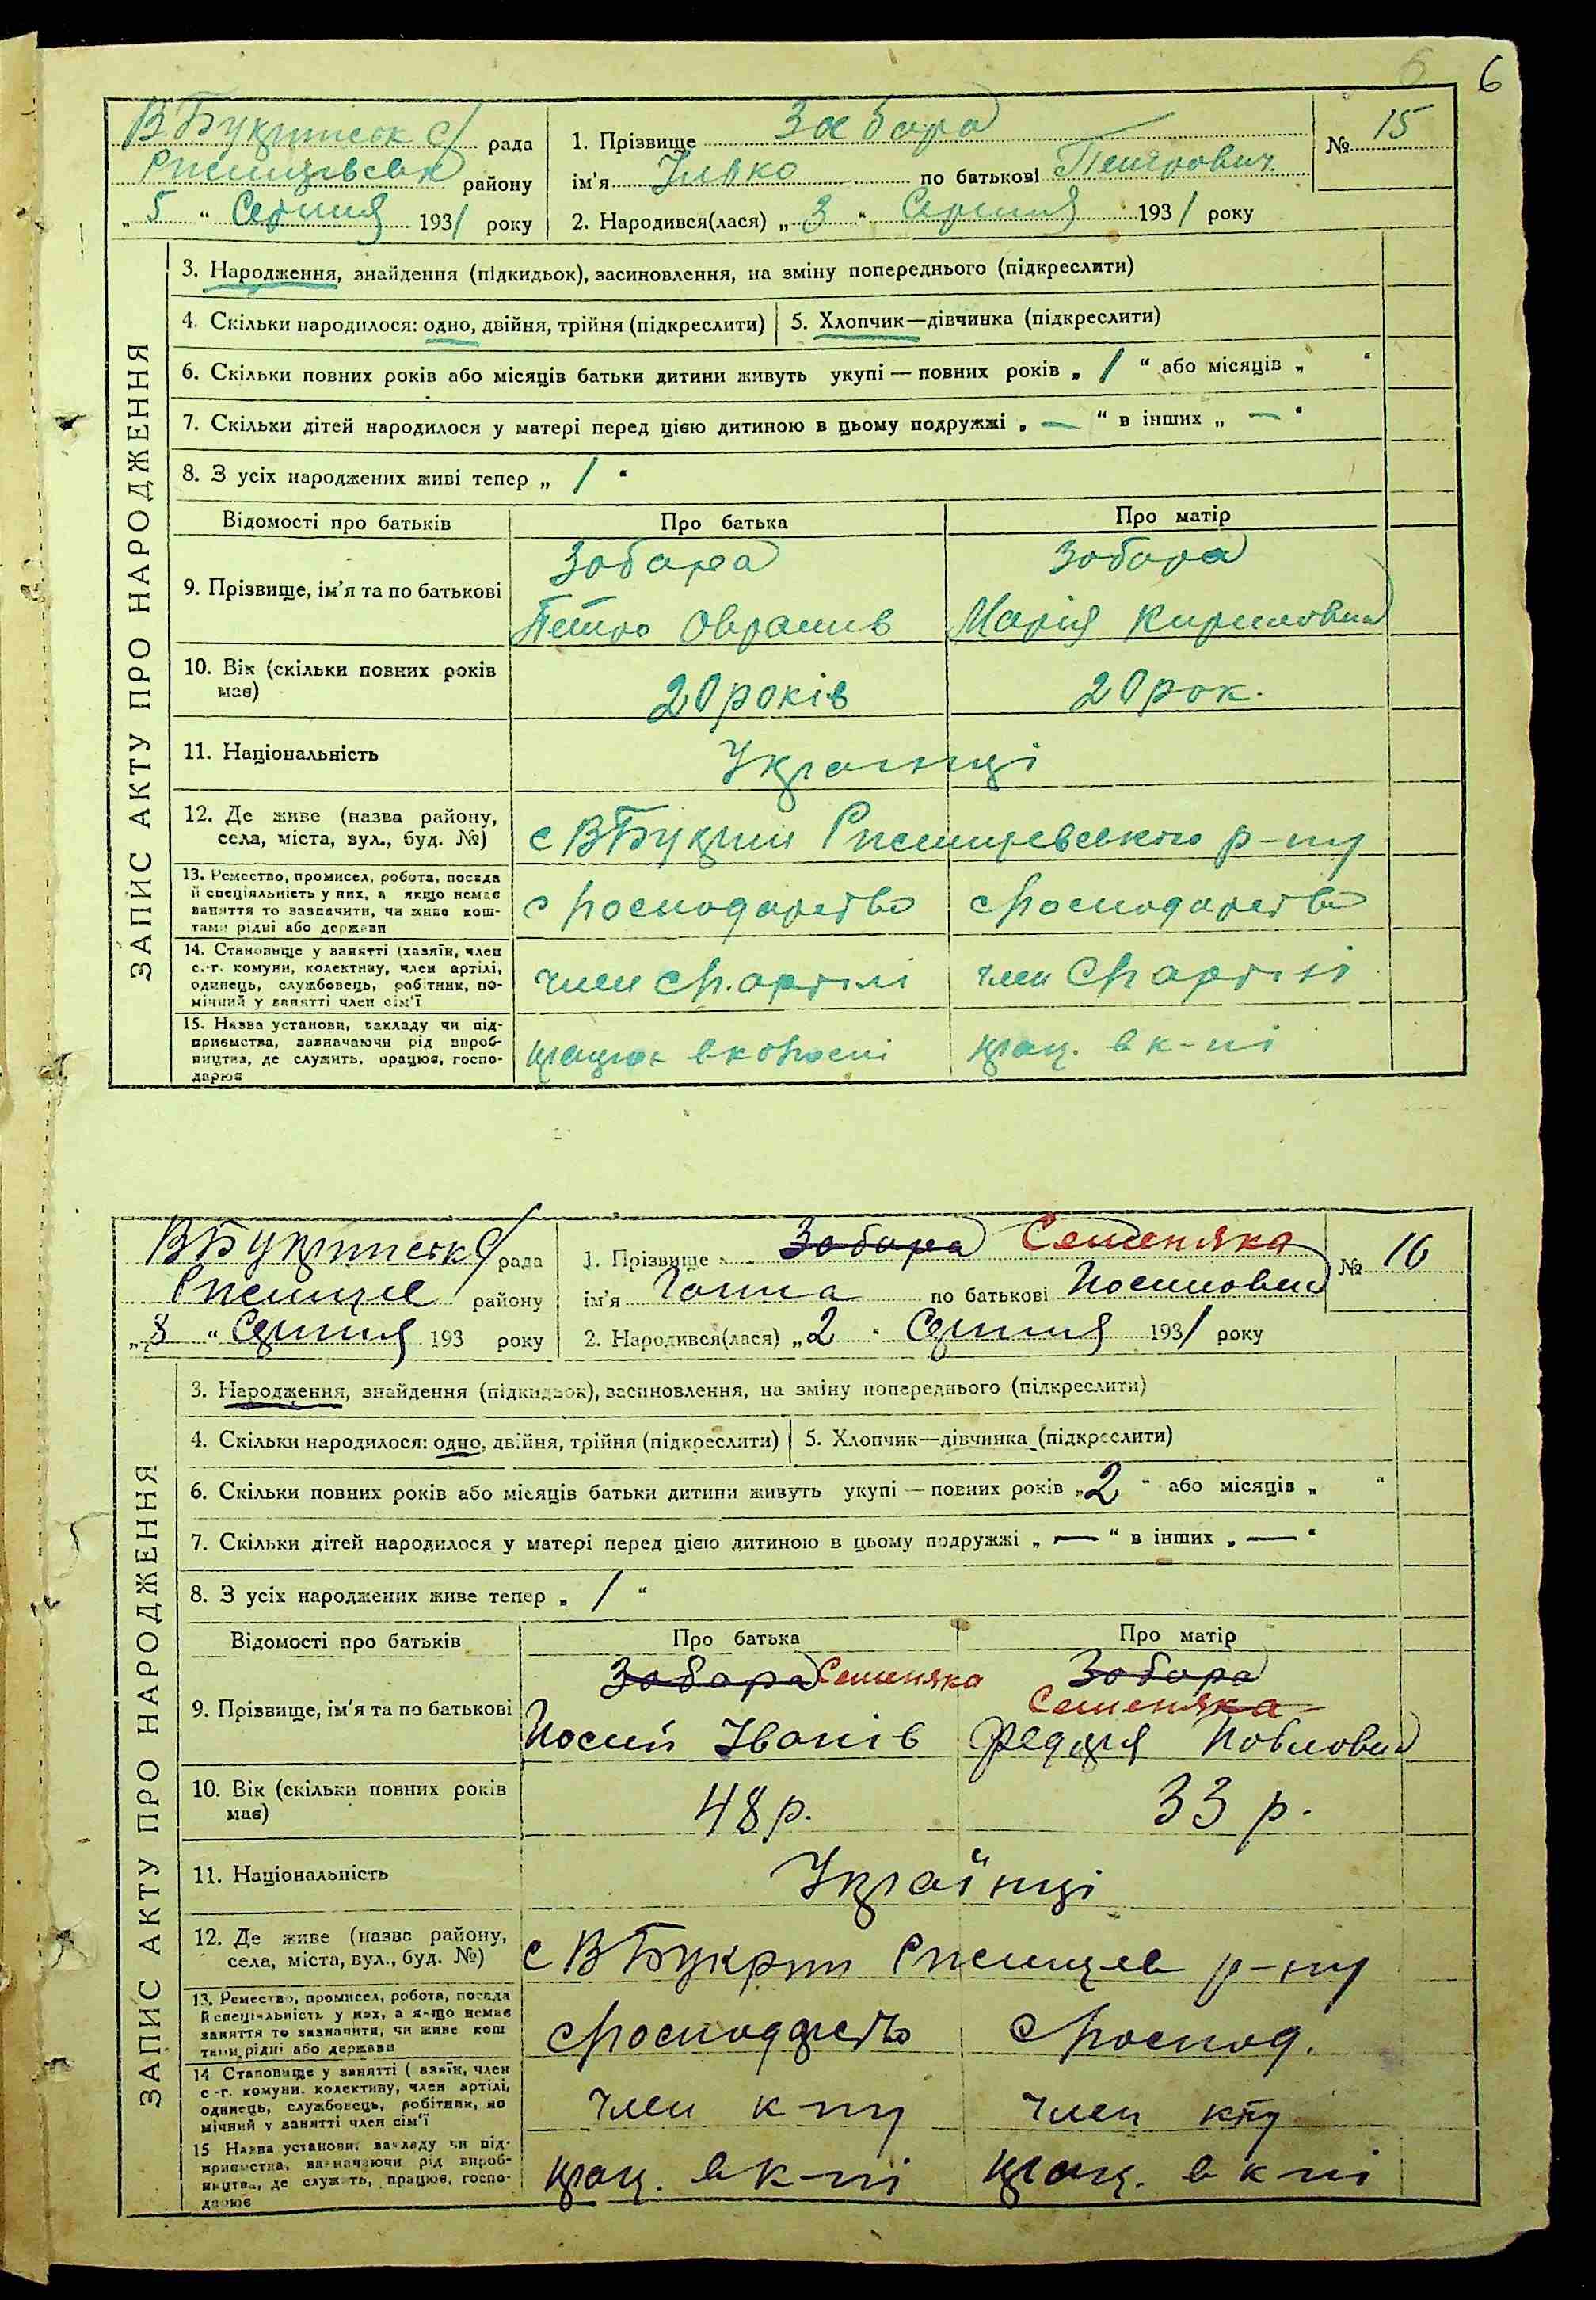 6
В Букринськ с/ рада
Ржищівськ району
„ 5 “ Серпня 1931 року
1. Прізвище Забара
ім'я Ілько по батькові Петрович
№ 15
2. Народився(лася) „ 3 “ Серпня 1931 року
ЗАПИС АКТУ ПРО НАРОДЖЕННЯ
3. Народження, знайдення (підкидьок), засиновлення, на зміну попереднього (підкреслити)
4. Скільки народилося: одно, двійня, трійня (підкреслити) 5. Хлопчик—дівчинка (підкреслити)
6. Скільки повних років або місяців батьки дитини живуть укупі — повних років „ 1 “ або місяців „ “
7. Скільки дітей народилося у матері перед цією дитиною в цьому подружжі „ — “ в інших „ — “
8. З усіх народжених живі тепер „ 1 “
Відомості про батьків Про батька Про матір
9. Прізвище, ім'я та по батькові
Забара Забара
Петро Оврамів Марія Кириловна
10. Вік (скільки повних років має)
20 років 20 рок.
11. Національність
Українці
12. Де живе (назва району, села, міста, вул., буд. №)
с В Букрин Ржищевського р-ну
13. Ремество, промисел, робота, посада й спеціяльність у них, а якщо немає заняття то зазначити, чи живе коштами рідні або держави
с господарство с господарство
14. Становище у занятті (хазяїн, член с.-г. комуни, колективу, член артілі, одинець, службовець, робітник, помічний у занятті член сім'ї
член с г. артілі член с г артілі
15. Назва установи, закладу чи підприємства, зазначаючи рід виробництва, де служить, працює, господарює
працює в колгоспі прац. в к-пі
В Букринськ с/ рада
району
„ 8 “ Серпня 193 року
1. Прізвище Забара Семеняка
ім'я Ганна по батькові Йосиповна
№ 16
2. Народився(лася) „ 2 “ Серпня 1931 року
ЗАПИС АКТУ ПРО НАРОДЖЕННЯ
3. Народження, знайдення (підкидьок), засиновлення, на зміну попереднього (підкреслити)
4. Скільки народилося: одно, двійня, трійня (підкреслити) 5. Хлопчик—дівчинка (підкреслити)
6. Скільки повних років або місяців батьки дитини живуть укупі — повних років „ 2 “ або місяців „ “
7. Скільки дітей народилося у матері перед цією дитиною в цьому подружжі „ — “ в інших „ — “
8. З усіх народжених живе тепер „ 1 “
Відомості про батьків Про батька Про матір
9. Прізвище, ім'я та по батькові
Забара Семеняка Забара
Семеняка
Йосип Іванів Федора Павловна
10. Вік (скільки повних років має)
48 р. 33 р.
11. Національність
Українці
12. Де живе (назва району, села, міста, вул., буд. №)
с В Букрин Ржищев р-ну
13. Ремество, промисел, робота, посада й спеціяльність у них, а якщо немає заняття то зазначити, чи живе коштами рідні або держави
с господарство с господ.
14. Становище у занятті (хазяїн, член с.-г. комуни, колективу, член артілі, одинець, службовець, робітник, помічний у занятті член сім'ї
член к-пу член к-пу
15. Назва установи, закладу чи підприємства, зазначаючи рід виробництва, де служить, працює, господарює
прац. в к-пі прац. в к-пі